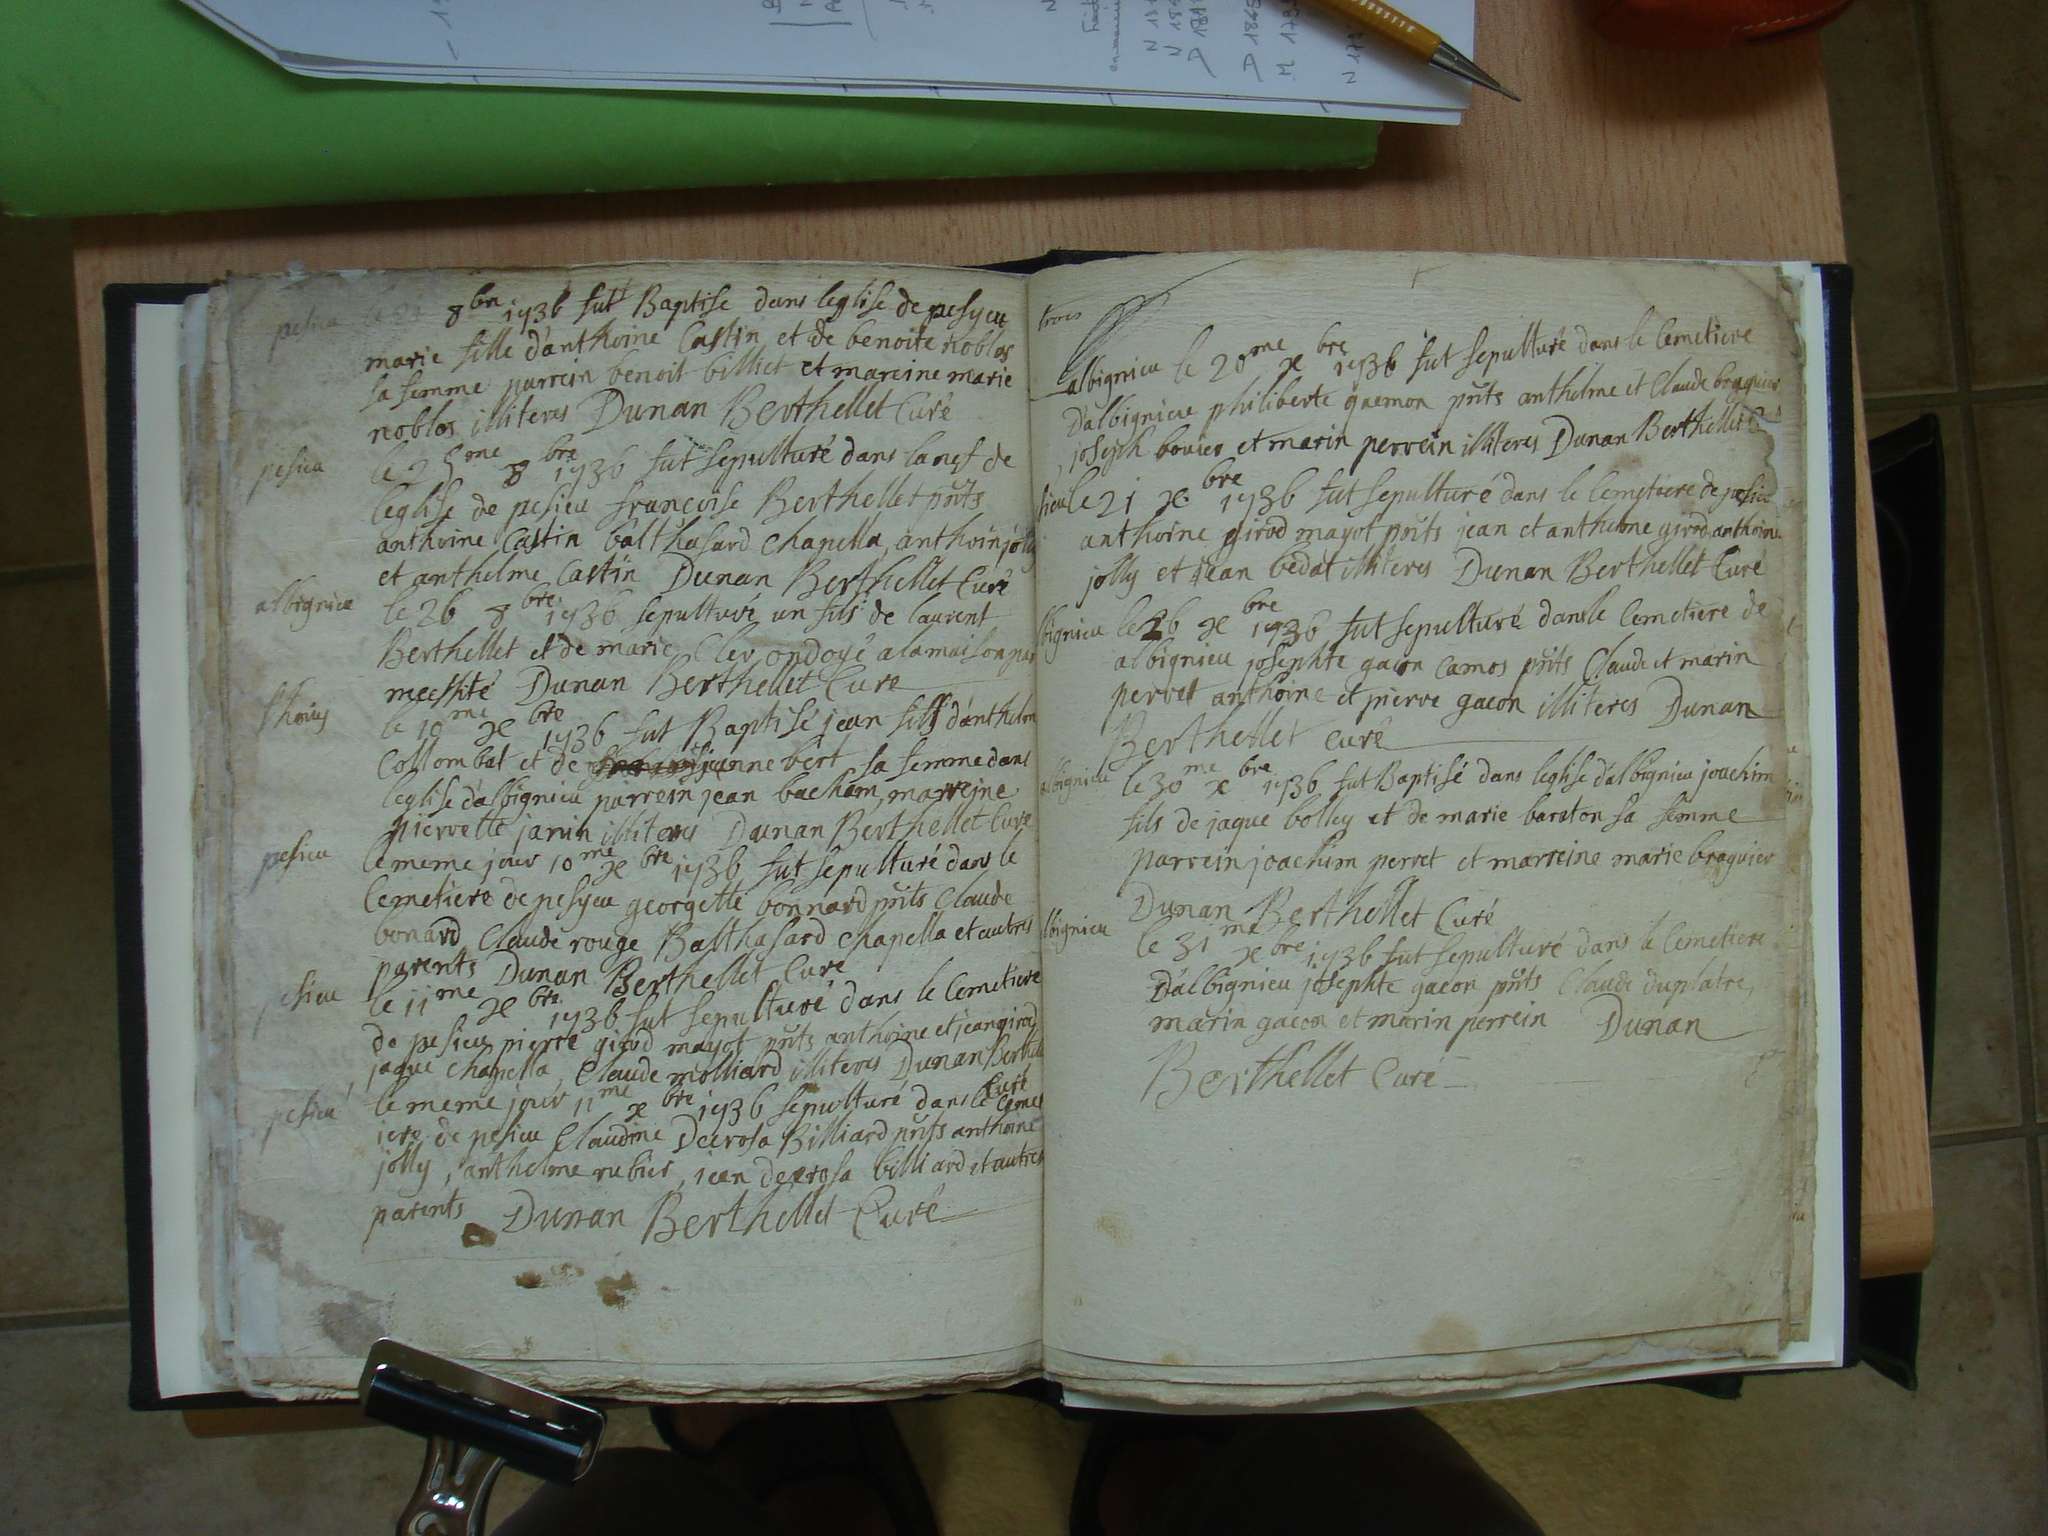 pesieu le 8bre 1736 fut Baptise dans leglise de pesyeu
marie fille d'anthoine Castin et de benoite noblos
sa femme parrein benoit billiet et mareine marie
noblos illiteres Dunan Berthellet Curé
pesieu le 25me 8bre 1736 fut sepulturé dans la nef de
leglise de pesieu françoise Berthellet pñts
anthoine Castin balthasard Chapella, anthoin jolly
et anthelme Castin Dunan Berthellet Curé
albignieu le 26 8bre 1736 sepulturé un fils de laurent
Berthellet et de marie Cler ondoyé a la maison par
necessité Dunan Berthellet Curé
le 10me xbre 1736 fut Baptisé jean fils d'anthelm
Collombat et de jeanne bert sa femme dans
leglise d'albignieu parrein jean bacham, marreine
pierrette janin illiteres Dunan Berthellet Curé
pesieu le meme jour 10me xbre 1736 fut sepulturé dans le
Cemetiere de pesyeu georgette bonnard pñts Claude
bonard Claude rouge Balthasard Chapella et autres
parents Dunan Berthellet Curé
pesieu le 11me xbre 1736 fut sepulturé dans le Cemetiere
de pesieu pierre girod mayot pñts anthoine et jean girod
jaque Chapella, Claude molliard illiteres Dunan Berthelle
Curé
pesieu le meme jour 11me xbre 1736 sepulturé dans le Cemet
iere de pesieu Claudine Decrosa Billiard pñts anthoine
jolly, anthelme rubier, jean decrosa billiard et autres
parents Dunan Berthellet Curé
trois
albignieu le 20me xbre 1736 fut sepulturé dans le Cemetiere
d'albignieu philiberte gaemon pñts anthelme et Claude braguier
joseph bouier et marin perrein illiteres Dunan Berthellet
sieu le 21 xbre 1736 fut sepulturé dans le Cemetiere de pesieu
anthoine girod mayot pñts jean et anthelme girod anthoine
jolly et jean bedat illiteres Dunan Berthellet Curé
lbignieu le 26 xbre 1736 fut sepulturé dans le Cemetiere de
albignieu josephte gacon Camos pñts Claude et marin
perret anthoine et pierre gacon illiteres Dunan
Berthellet Curé
albignieu le 30me xbre 1736 fut Baptisé dans leglise d'albignieu joachim
fils de jaque bolley et de marie baraton sa femme
parrein joachim perret et marreine marie braguier
Dunan Berthellet Curé
lbignieu le 31me xbre 1736 fut sepulturé dans le Cemetiere
D'albignieu josephte gacon pñts Claude duplatre,
marin gacon et marin perrein Dunan
Berthellet Curé